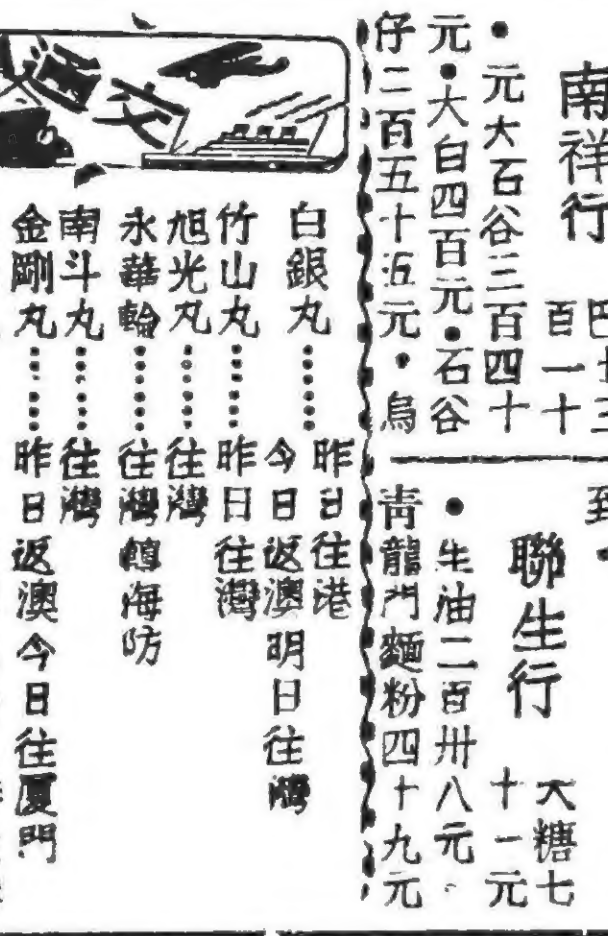 南祥行
百一十
•元大石谷三百四十
元•大白四百元•石谷
仔二百五十五元•烏
到•
聯生行
大糖七
十一元
•生油二百卅八元
青龍門麵粉四十九元
交
白銀丸……昨日往港
今日返澳明日往灣
竹山丸……昨日往灣
旭光丸……往灣
永華輪……往灣轉海防
南斗丸……往灣
金剛丸……昨日返澳今日往厦門